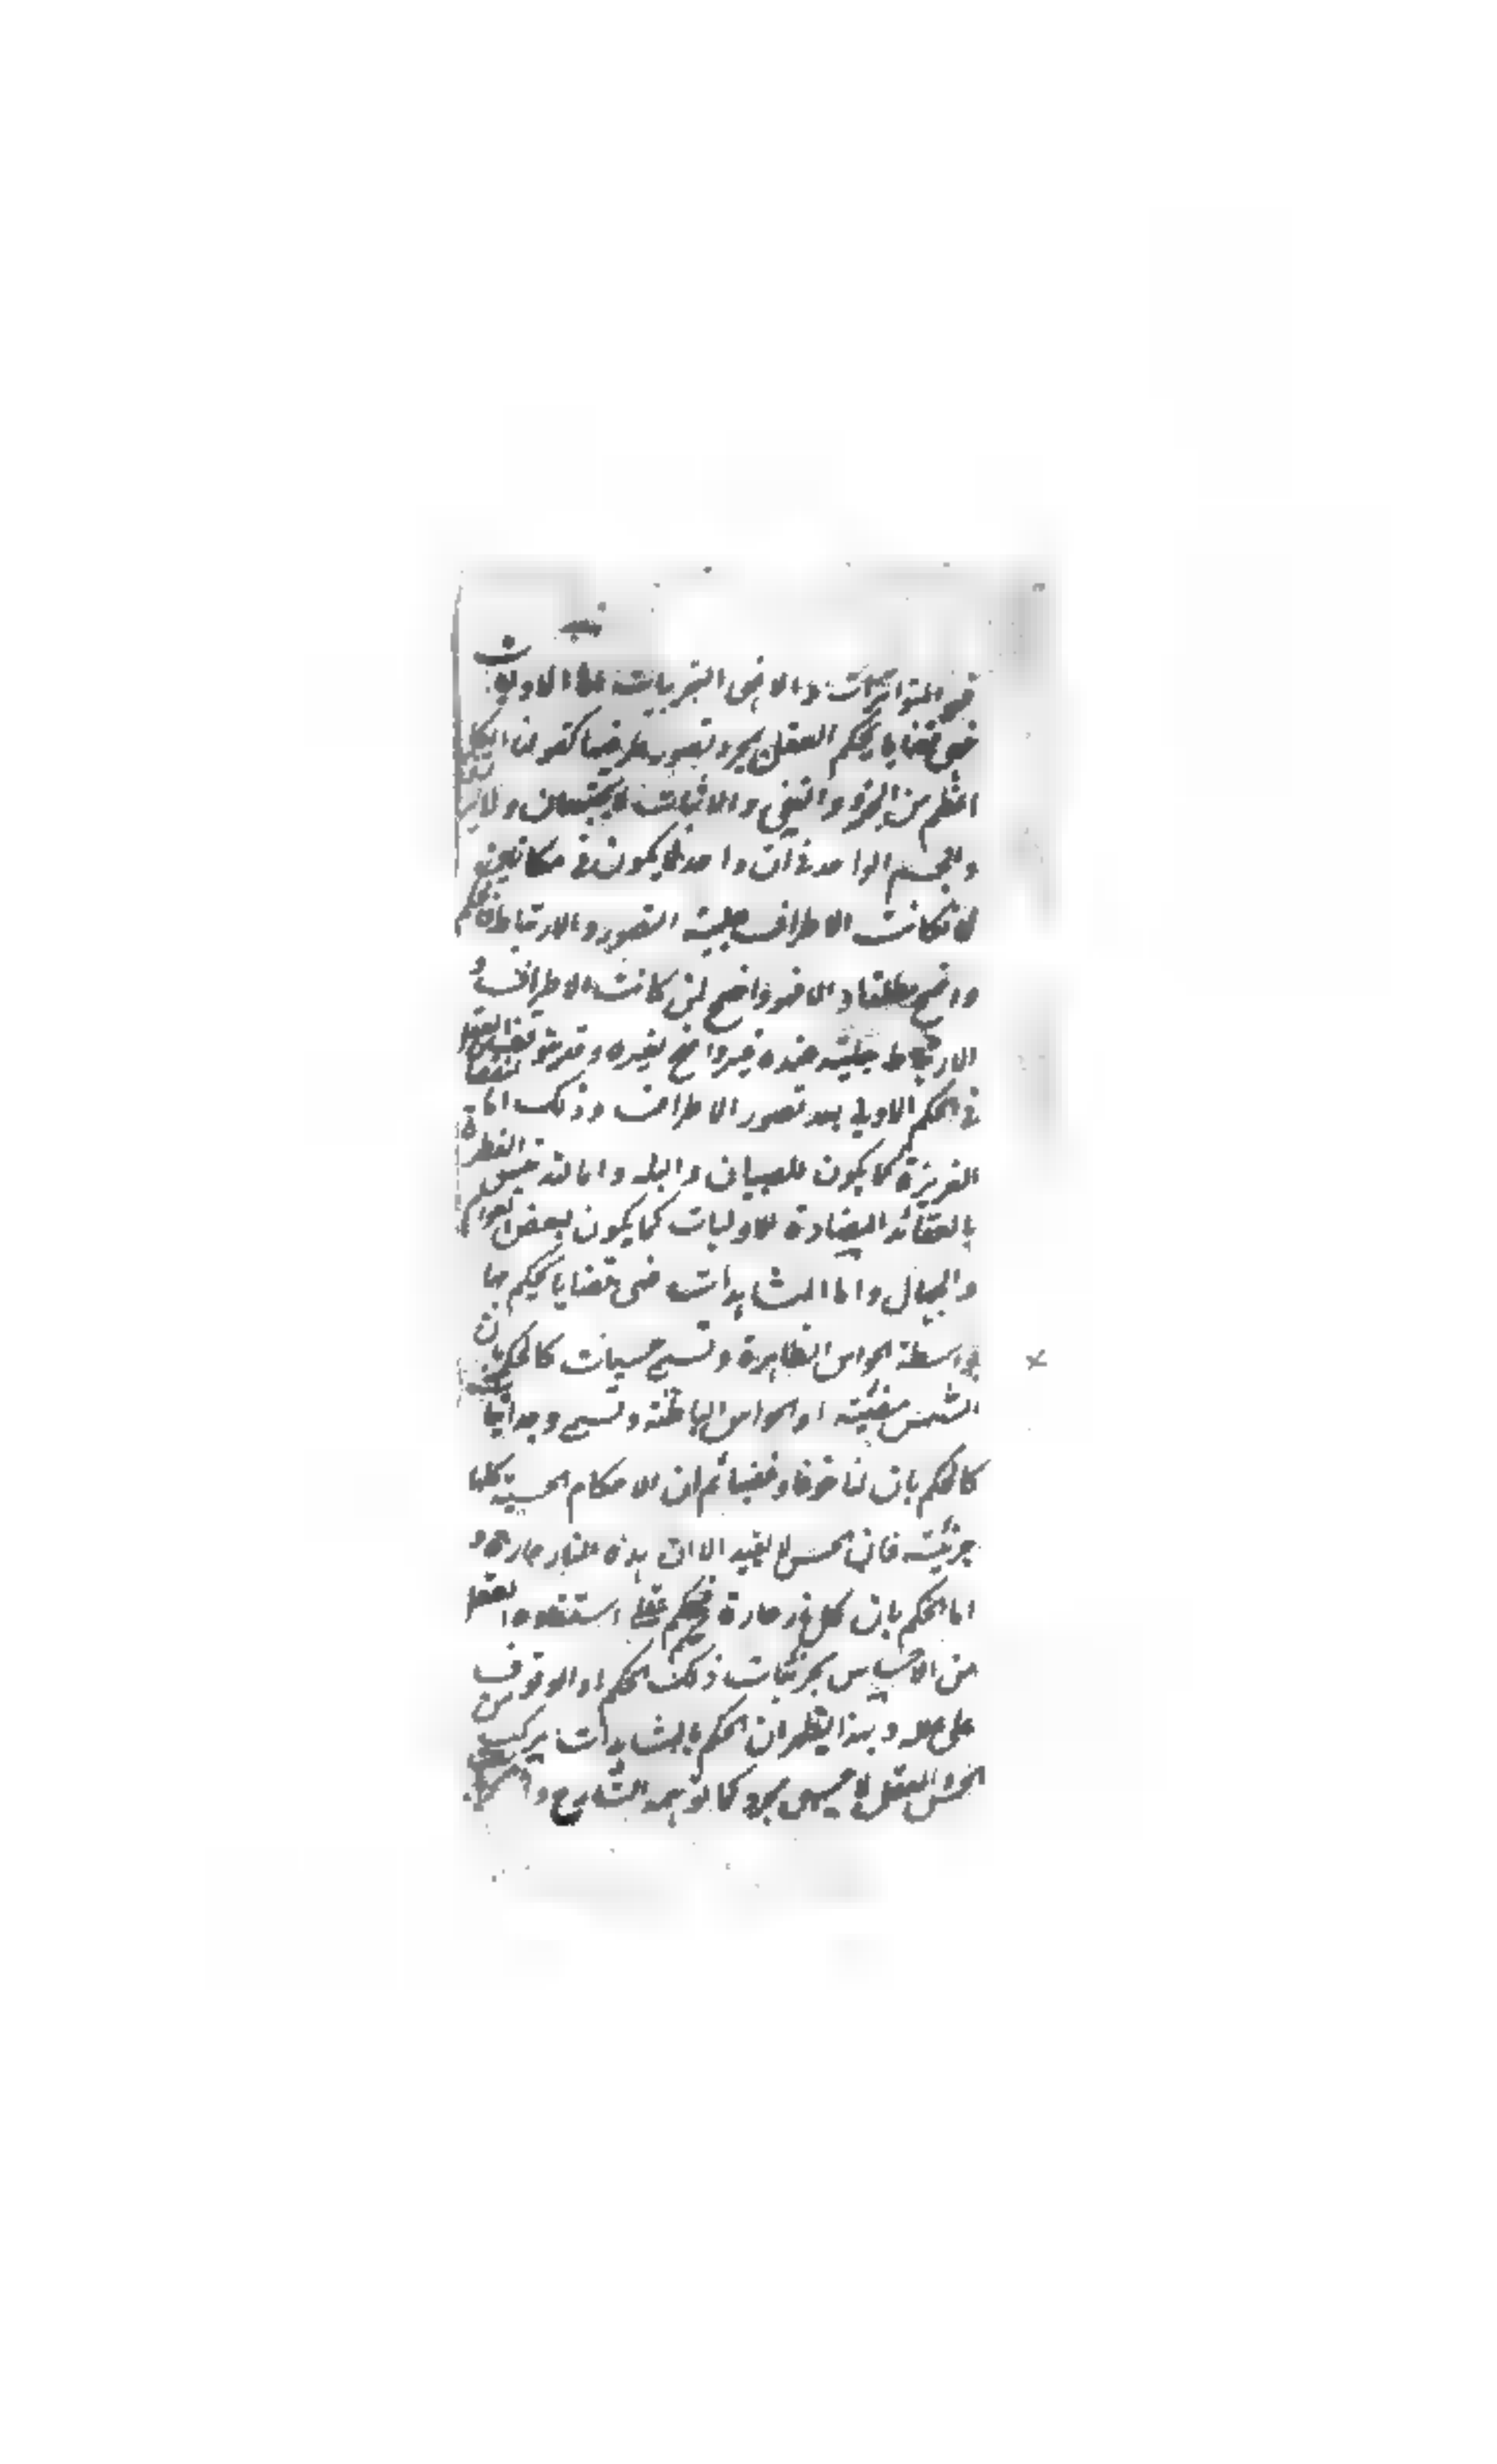 فهي المتواترات والا فهي التجربيات اما الاوليات
فهي قضايا يحكم العقل بمجرد تصور طرفيها كقولنا الكل
اعظم من الجزء والنفي والاثبات لا يجتمعان ولا يرتفعان
والجسم الواحد في آن واحد لا يكون في مكانين
فان كانت الاطراف جلية التصور والارتباط فالحكم
واضح مطلقا والا فهو واضح لمن كانت الاطراف و
الارتباط جلية عنده غير واضح لغيره وقد يتوقف العقل
في الحكم الاولي بعد تصور الاطراف وذلك اما لنقصان
الغريزة كما يكون للصبيان والبله واما لتدنيس الفطرة
بالعقائد المضادة للاوليات كما يكون لبعض العوام
والجهال واما المشاهدات فهي قضايا يحكم بها
بواسطة الحواس الظاهرة وتسمى حسيات كالحكم بان
الشمس مضيئة او الحواس الباطنة وتسمى وجدانيات
كالحكم بان لنا خوفا وغضبا ثم ان الاحكام الحسية كلها
جزئية فان الحس لا يفيد الا ان هذه النار حارة و
اما الحكم بان كل نار حارة فحكم عقلي استفاده العقل
من الاحساس بجزئيات ذلك الحكم والوقوف
على علله وبهذا يظهر ان الحكم بالمشاهدات يركب من
الحس والعقل لا حسي مجرد كما توهمه الشارح و